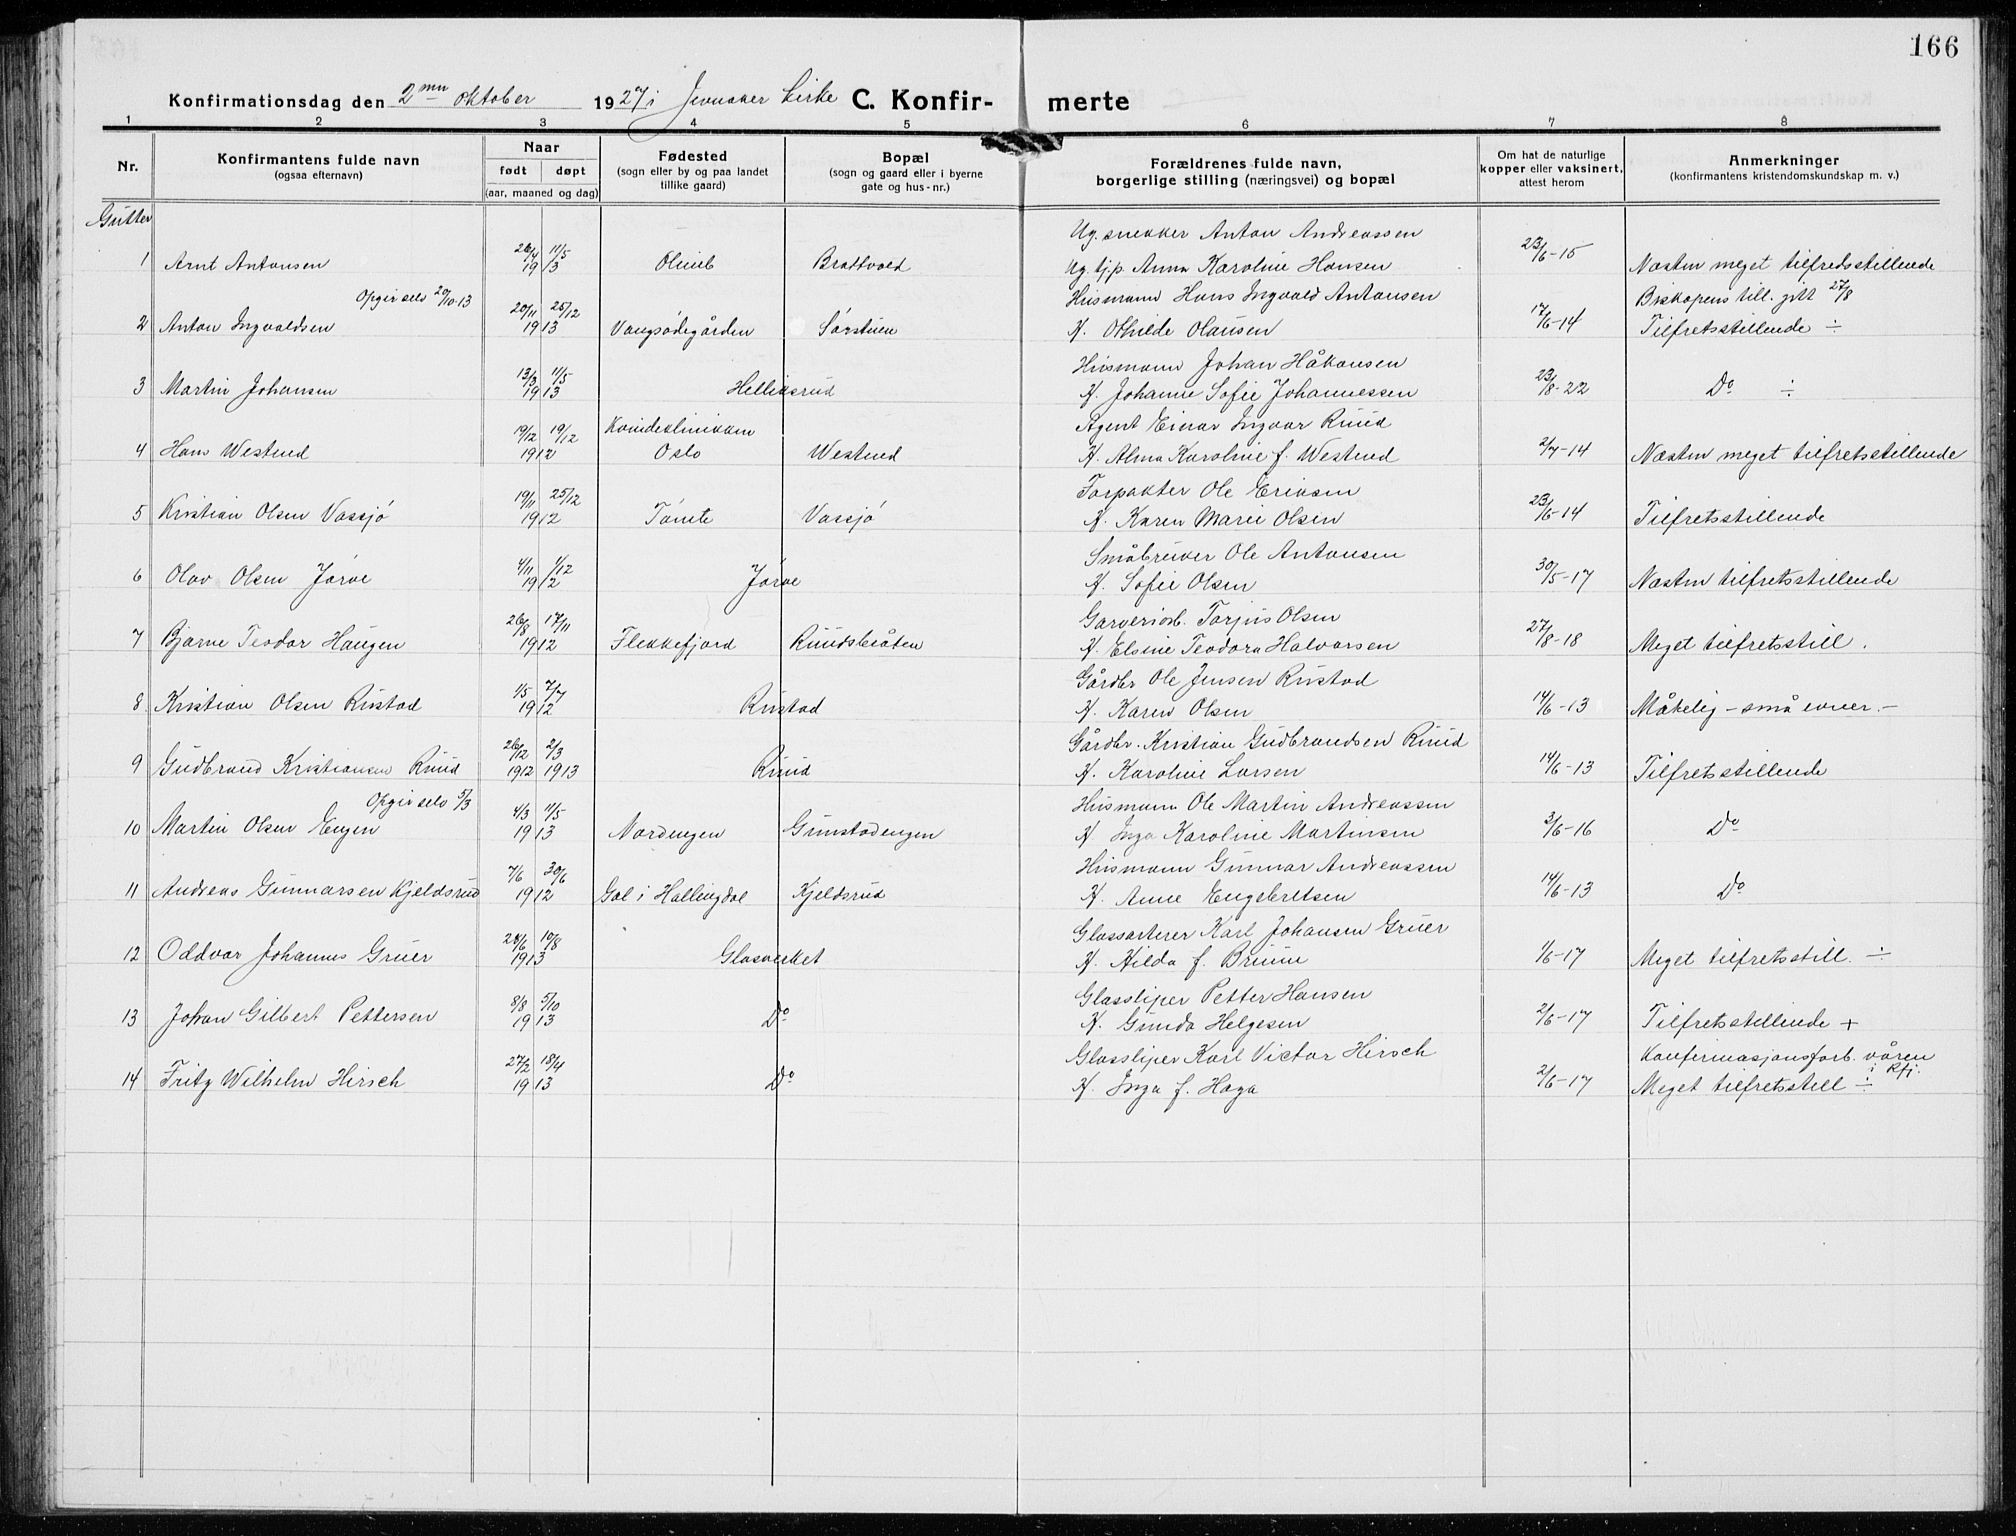 166
Konfirmationsdag den 2den oktober 1927 i Jevnaker kirke C. Konfir- merte
1 2 3 4 5 6 7 8
Nr.
Konfirmantens fulde navn
(ogsaa efternavn)
Naar
født døpt
(aar, maaned og dag)
Fødested
(sogn eller by og paa landet
tillike gaard)
Bopæl
(sogn og gaard eller i byerne
gate og hus-nr.)
Forældrenes fulde navn,
borgerlige stilling (næringsvei) og bopæl
Om hat de naturlige
kopper eller vaksinert,
attest herom
Anmerkninger
(konfirmantens kristendomskundskap m. v.)
Gutter
Ug. snekker Anton Andreassen
1 Arnt Antonsen 26/4 11/5 1913 Olimb Brattvold Ug. tj.p. Anna Karoline Hansen 23/6-15 Næsten meget tilfredsstillende
Opgir selv 20/10-13 Husmann Hans Ingvald Antonsen Biskopens till. gitt 27/8
2 Anton Ingvaldsen 20/11 25/12 1913 Vangsødegården Sørstuen H. Othilde Olausen 17/6-14 Tilfretsstillende ÷
Husmann Johan Håkonsen
3 Martin Johansen 13/3 11/5 1913 Helliksrud H. Johanne Sofie Johannessen 23/8-22 Do ÷
Kvindeklinikken Agent Einar Ingvar Ruud
4 Hans Westend 19/12 19/12 1912 Oslo Westend H. Alma Karoline f. Westend 2/7-14 Næsten meget tilfretsstillende
Forpakter Ole Eriksen
5 Kristian Olsen Vassjø 19/11 25/12 1912 Tømte Vassjø H. Karen Marie Olsen 23/6-14 Tilfretsstillende
Småbruker Ole Antonsen
6 Olav Olsen Jørve 4/11 1/12 1912 Jørve H. Sofie Olsen 30/5-17 Næsten tilfretsstillende
Garveriarb. Torjus Olsen
7 Bjarne Teodor Haugen 26/8 17/11 1912 Flekkefjord Ruudsbråten H. Elsine Teodora Halvorsen 27/8-18 Meget tilfretsstill.
Gårdbr Ole Jensen Rustad
8 Kristian Olsen Rustad 1/5 7/7 1912 Rustad H. Karen Olsen 14/6-13 Måtelig - små evner. -
Gårdbr. Kristian Gudbrandsen Ruud
9 Gudbrand Kristiansen Ruud 26/12 1912 2/3 1913 Ruud H. Karoline Larsen 14/6-13 Tilfretsstillende
Opgir selv 5/3 Husmann Ole Martin Andreassen
10 Martin Olsen Engen 4/3 11/5 1913 Nordengen Grinstadengen H. Inga Karoline Martinsen 3/6-16 Do
Husmann Gunnar Andreassen
11 Andreas Gunnarsen Kjeldsrud 7/6 30/6 1912 Gol i Hallingdal Kjeldsrud H. Anne Engebretsen 14/6-13 Do
Karl Johansen Gruer
12 Oddvar Johannes Gruer 10/8 1913 Glasverket H. Hilda f. Bruun 1/6-17 Meget tilfretsstill. ÷
Glassliper Petter Hansen
13 Johan Gilbert Pettersen 8/8 5/10 1913 Do H. Gunda Helgesen 2/6-17 Tilfretsstillende +
Glassliper Karl Victor Hirsch Konfirmasjonsforb. våren
14 Fritz Wilhelm Hirsch 27/2 18/4 1913 Do H. Inga f. Haga 2/6-17 Meget tilfretsstill ÷